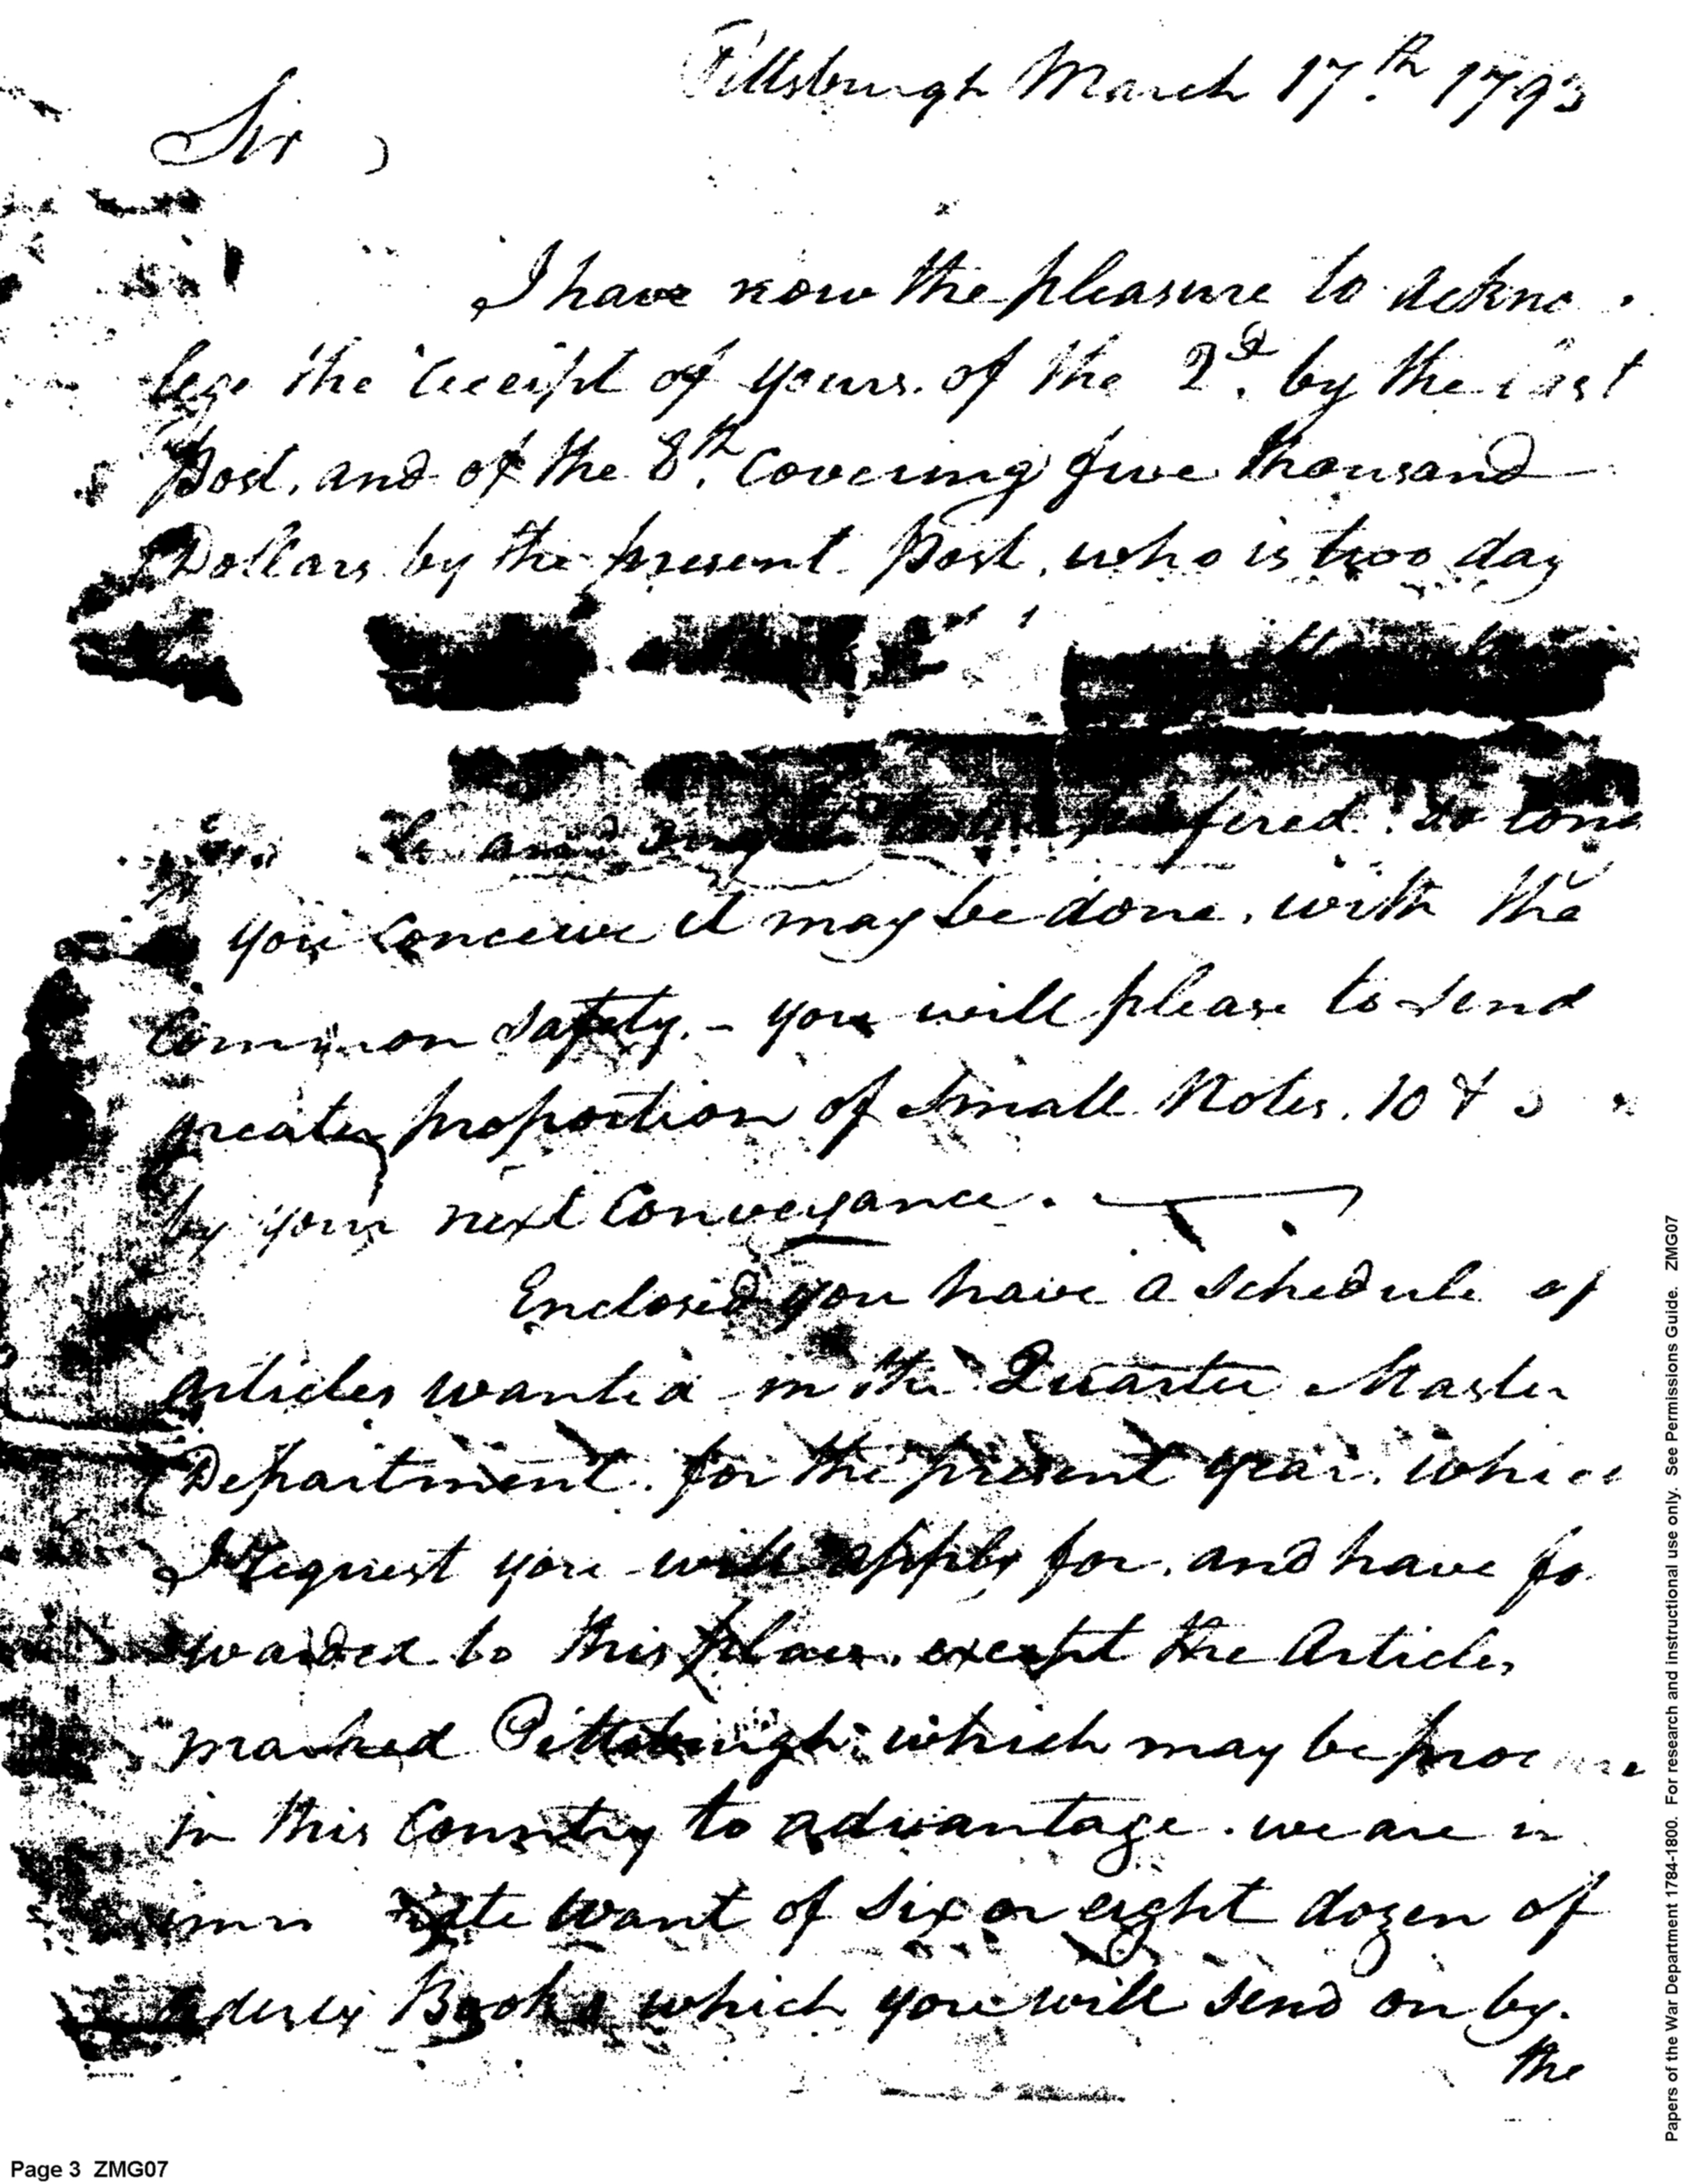 Pittsburgh March 17.th 1793
Sir,
I have now the pleasure to ackno
lege the receipt of yours of the 2.d by the last
Post, and of the 8.th Covering five thousand
Dollars by the present Post, who is two day
and fered. So long
you conceive it may be done, with the
Common safety. – you will please to send
greater proportion of small Notes. 10 & 5
by your next Conveyance.
Enclosed you have a schedule of
articles wanted in the Quarter Master
Department. for the present year. which
I Request you will apply for, and have fo
warded to this place. except the Articles
marked Pittsburgh; which may be procure
in this Country to advantage. we are in
want of six or eight dozen of
Books which you will send on by.
the
Page 3 ZMG07
Papers of the War Department 1784-1800. For research and instructional use only. See Permissions Guide. ZMG07